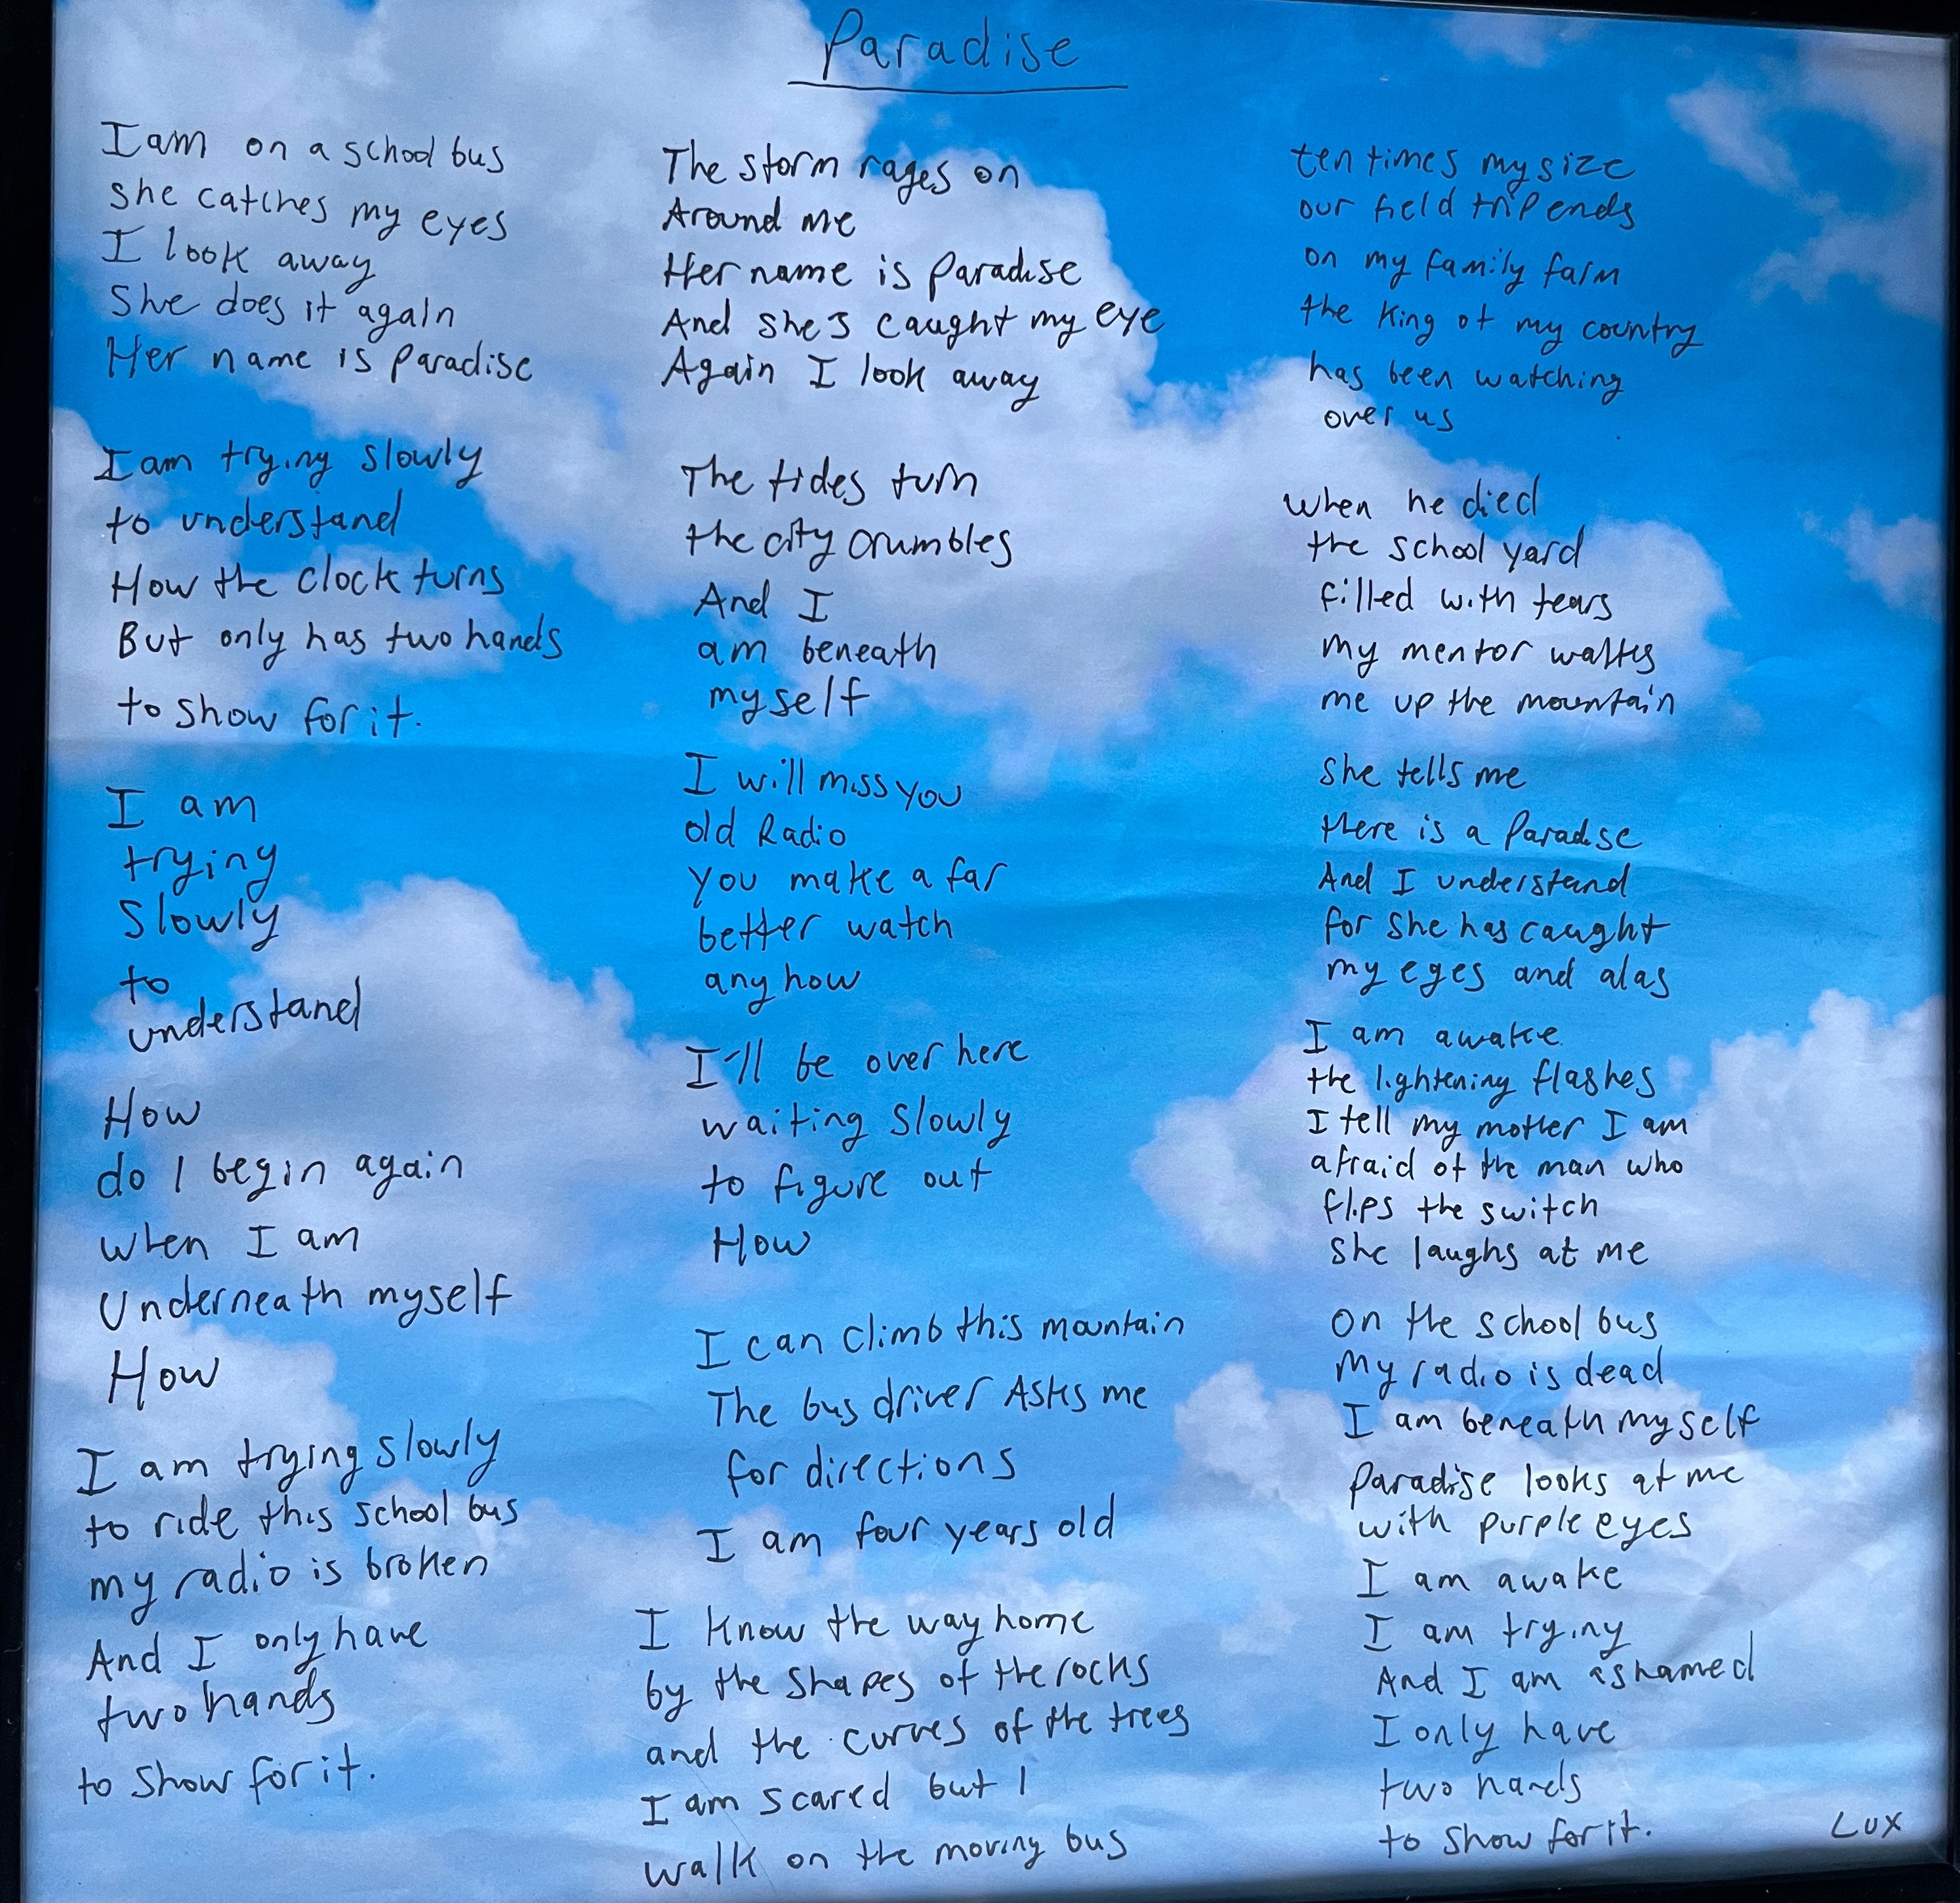 Paradise
I am on a school bus
she catches my eyes
I look away
She does it again
Her name is paradise
I am trying slowly
to understand
How the clock turns
But only has two hands
to show for it.
I am
trying
slowly
to
understand
How
do I begin again
when I am
Underneath myself
How
I am trying slowly
to ride this school bus
my radio is broken
And I only have
two hands
to show for it.
The storm rages on
Around me
Her name is paradise
And she's caught my eye
Again I look away
The tides turn
the city crumbles
And I
am beneath
myself
I will miss you
old Radio
you make a far
better watch
anyhow
I'll be over here
waiting slowly
to figure out
How
I can climb this mountain
The bus driver Asks me
for directions
I am four years old
I know the way home
by the shapes of the rocks
and the curves of the trees
I am scared but I
walk on the moving bus
ten times my size
our field trip ends
on my family farm
the king of my country
has been watching
over us
when he died
the school yard
filled with tears
my mentor walks
me up the mountain
she tells me
there is a Paradise
And I understand
for she has caught
my eyes and alas
I am awake
the lightening flashes
I tell my mother I am
afraid of the man who
flips the switch
she laughs at me
On the school bus
My radio is dead
I am beneath myself
paradise looks at me
with purple eyes
I am awake
I am trying
And I am ashamed
I only have
two hands
to show for it.
Lux